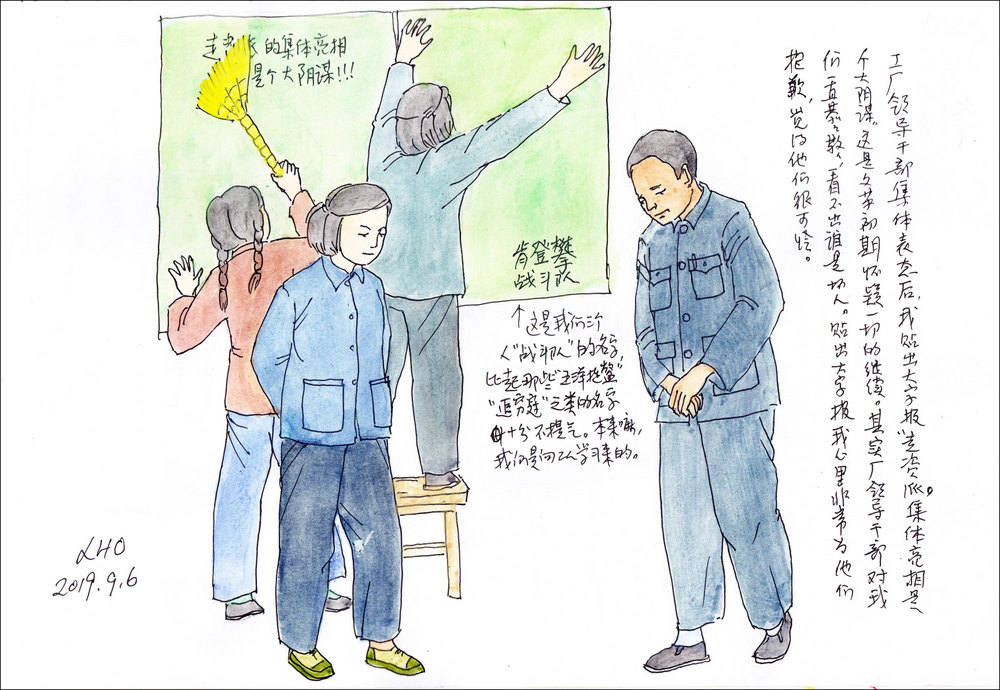 走 的集体亮相
是个大阴谋!!!
肯登攀
战斗队
↑这是我们三个
人“战斗队”的名字,
比起那些“五洋捉鳖”
“追穷寇”之类的名字
十分不提气。本来嘛,
我们是向工人学习来的。
工厂领导干部集体表态后,我贴出大字报“走资派”集体亮相是
个大阴谋。这是文革初期怀疑一切的继续。其实厂领导干部对我
们一直恭敬,看不出谁是坏人。贴出大字报我心里非常为他们
抱歉,觉得他们很可怜。
LHO
2019.9.6